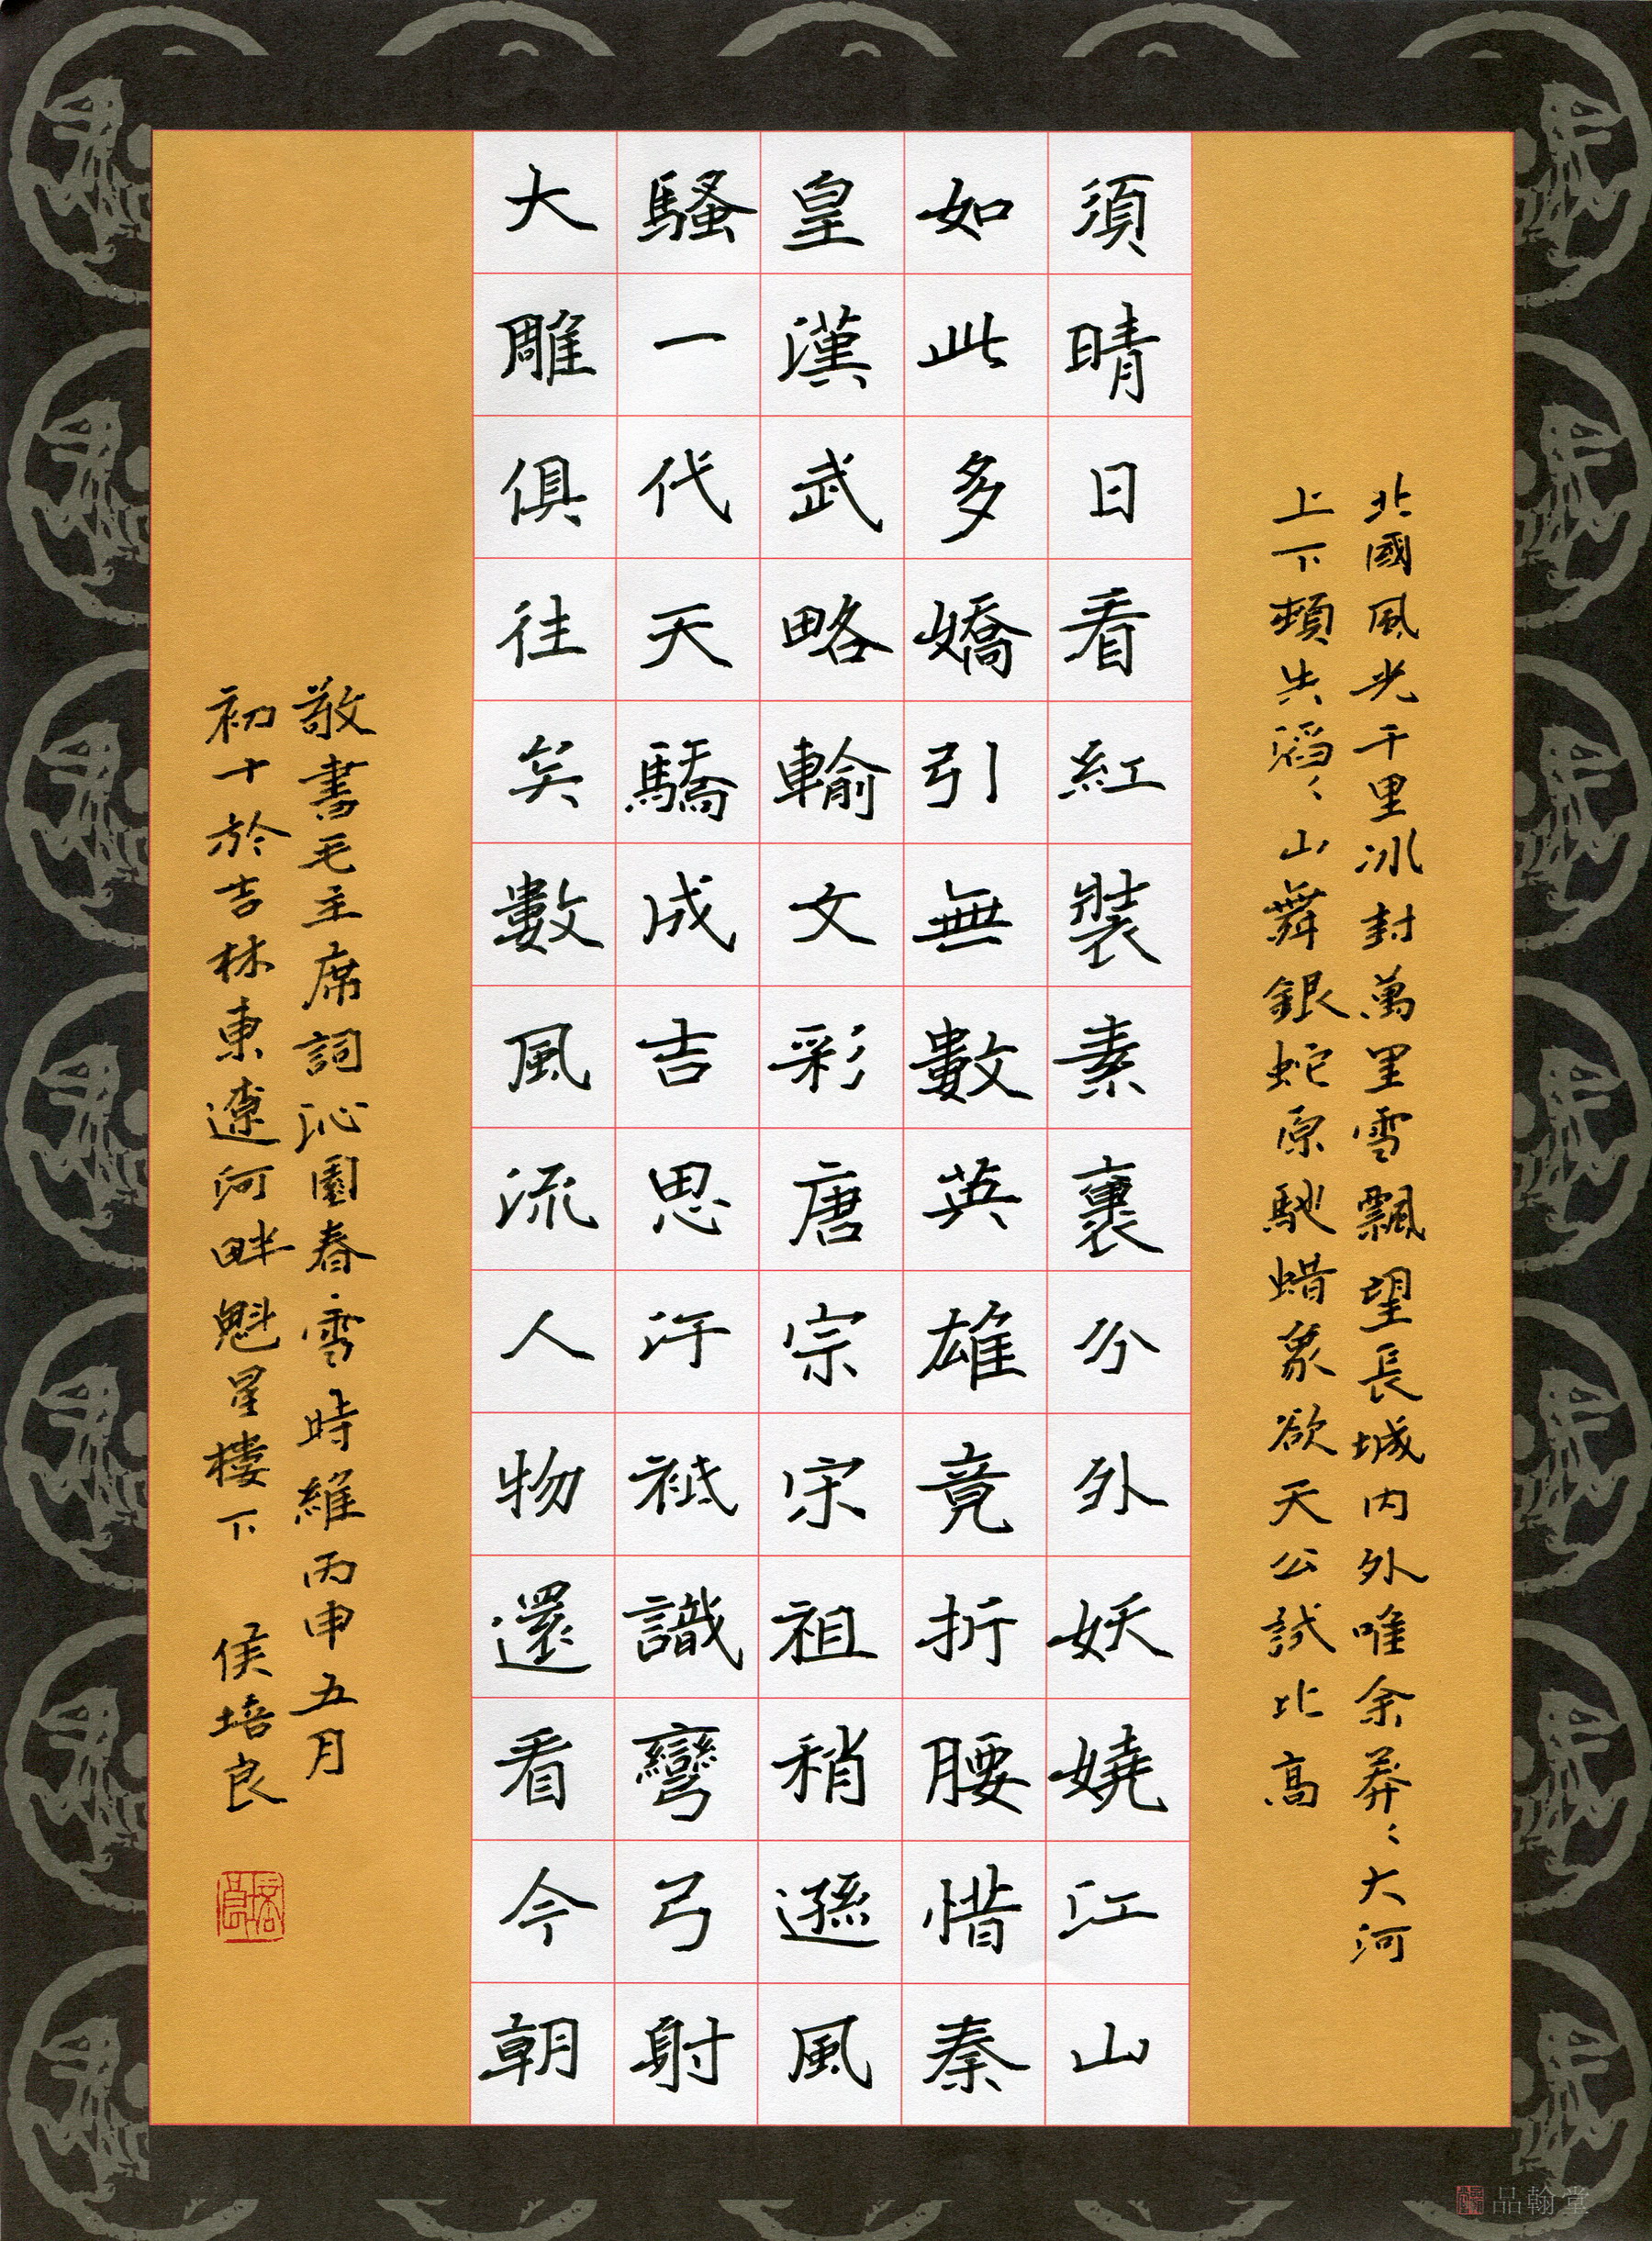 北國風光千里冰封萬里雪飄望長城内外唯余莽〻大河
上下頓失滔〻山舞銀蛇原馳蜡象欲天公試比高
須晴日看紅裝素裹分外妖嬈江山
如此多嬌引無數英雄竟折腰惜秦
皇漢武略輸文彩唐宗宋祖稍遜風
騷一代天驕成吉思汗祗識彎弓射
大雕俱往矣數風流人物還看今朝
敬書毛主席詞沁園春·雪時維丙申五月
初十於吉林東遼河畔魁星樓下 侯培良
品翰堂